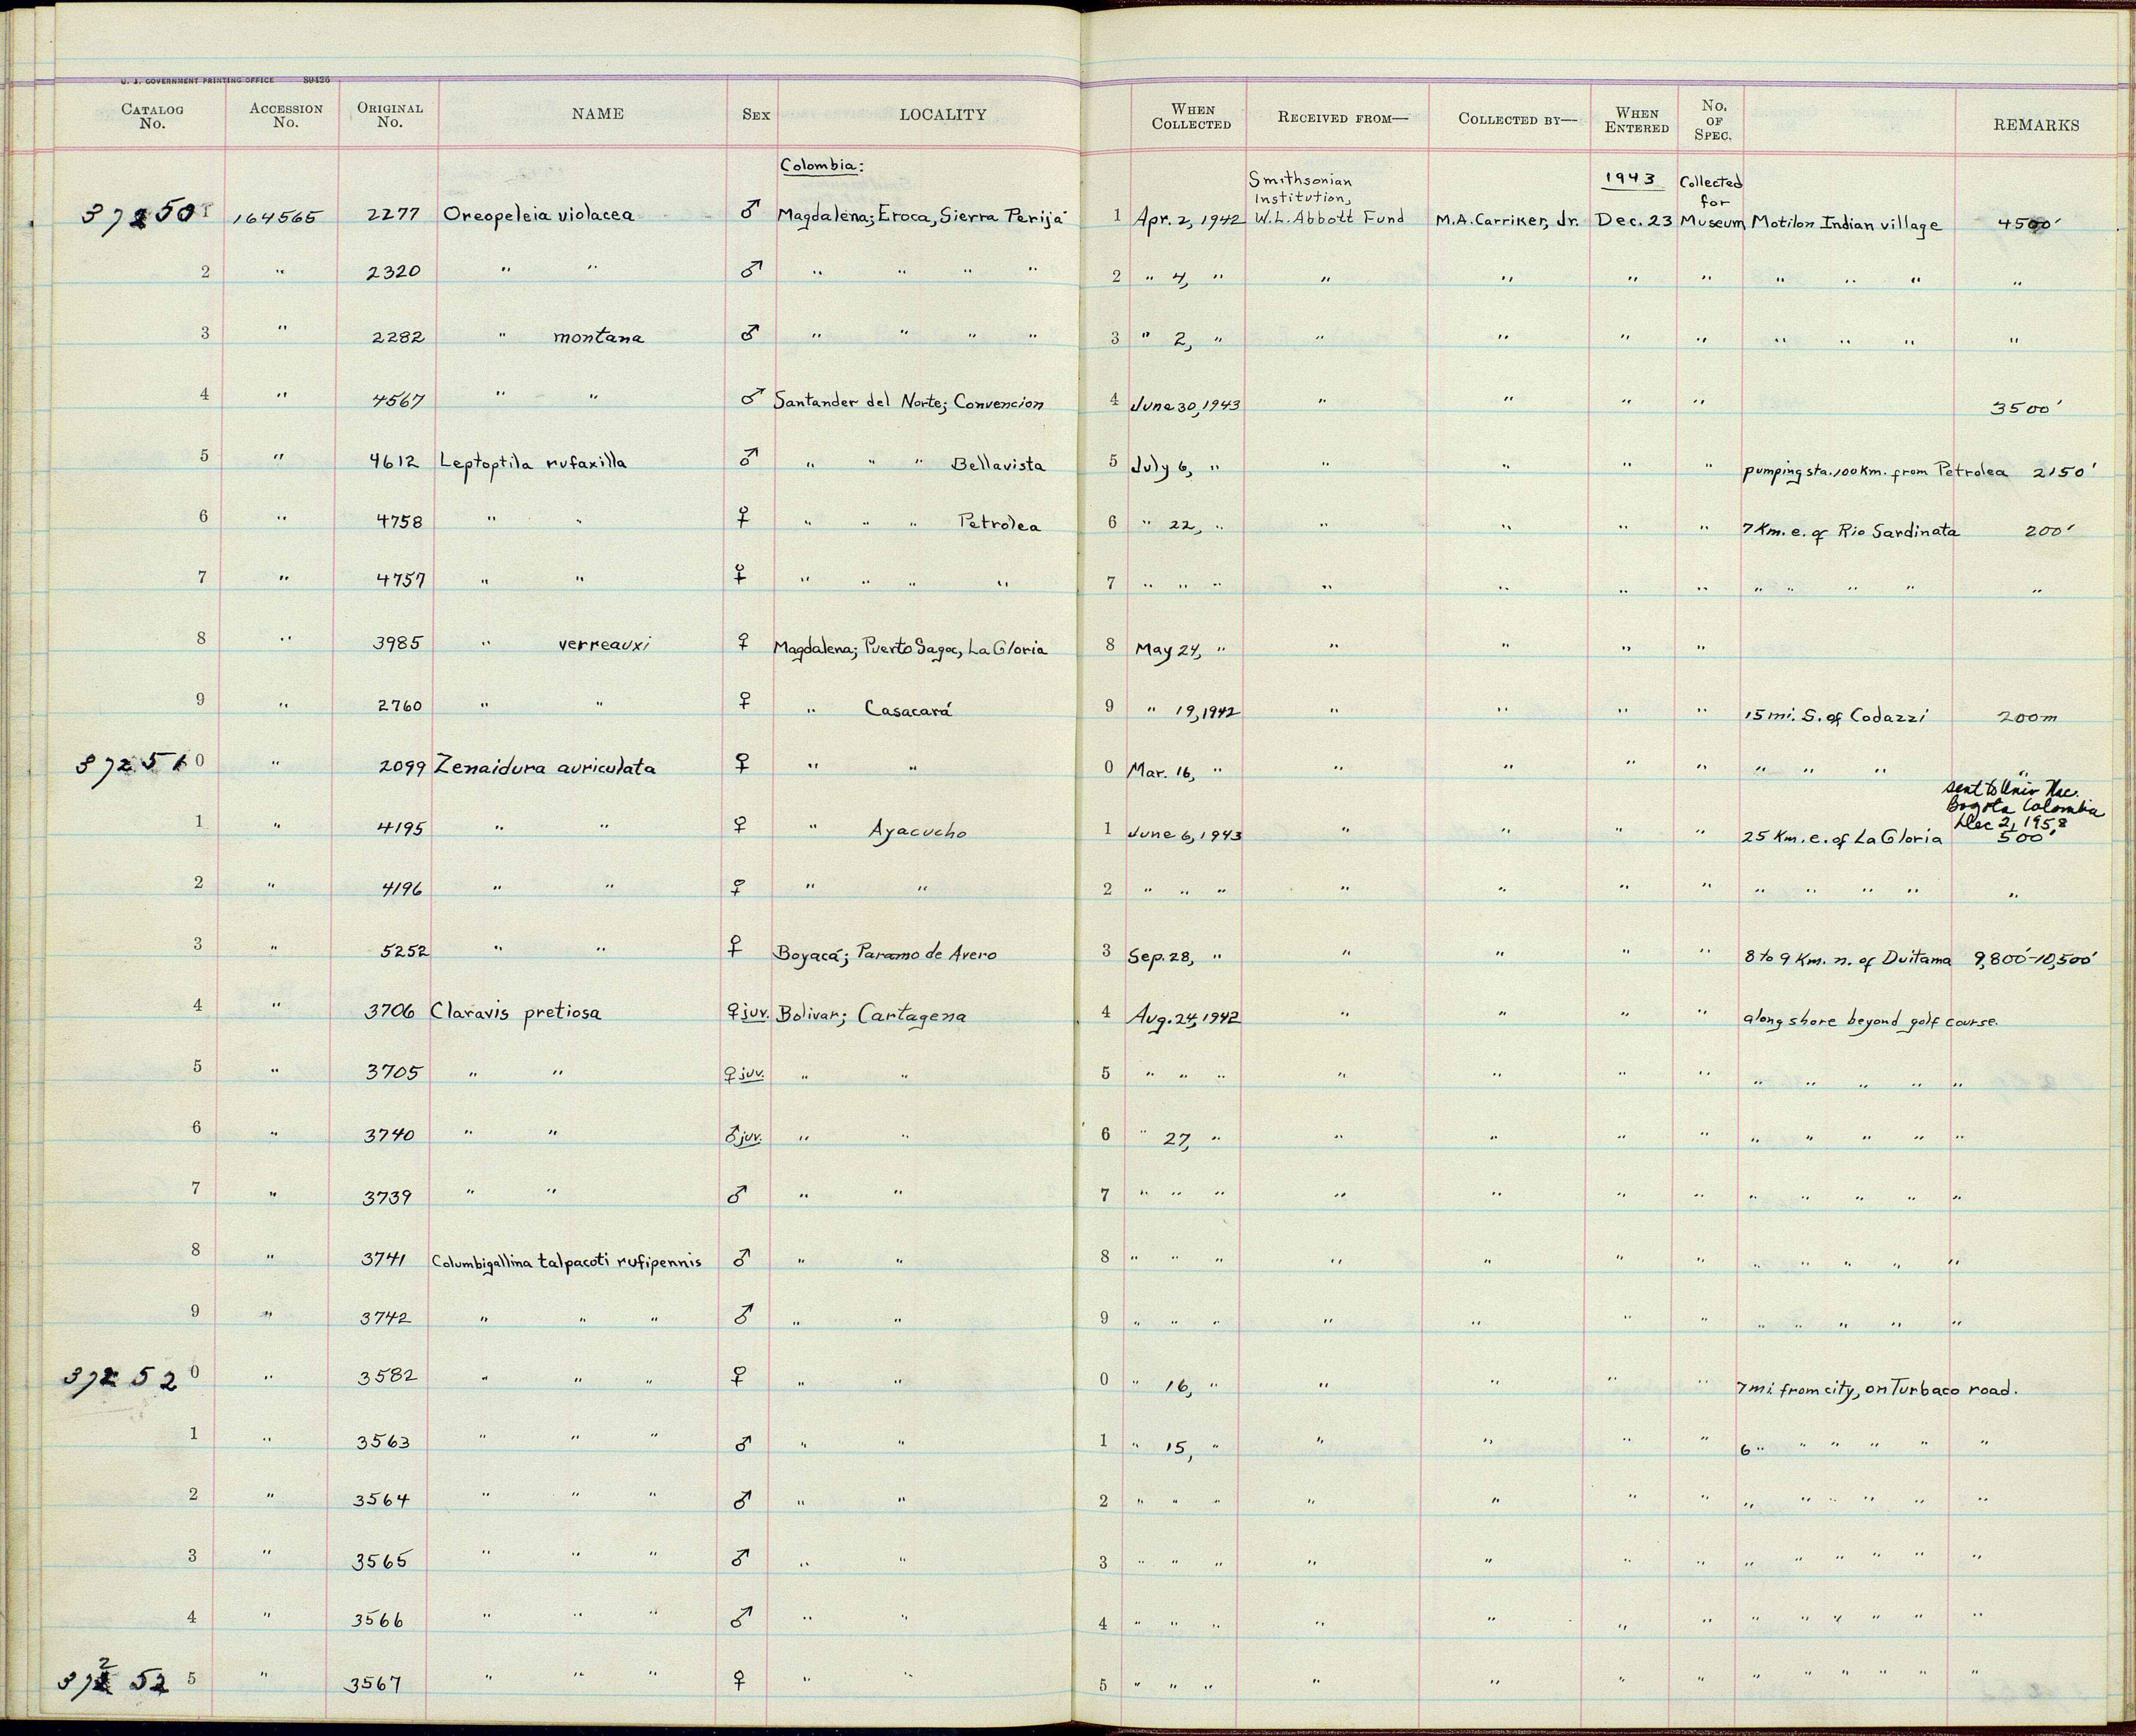 U. S. GOVERNMENT PRINTING OFFICE 89426
CATALOG No. ACCESSION No. ORIGINAL No. NAME SEX LOCALITY WHEN COLLECTED RECEIVED FROM— COLLECTED BY— WHEN ENTERED No. OF SPEC. REMARKS
Colombia:
Smithsonian Institution, 1943 Collected for
37250 1 164565 2277 Oreopeleia violacea ♂ Magdalena; Eroca, Sierra Perijá 1 Apr. 2, 1942 W.L. Abbott Fund M.A. Carriker, Jr. Dec. 23 Museum Motilon Indian village 4500'
2 " 2320 " " ♂ " " " " 2 " 4, " " " " " " " " "
3 " 2282 " montana ♂ " " " " 3 " 2, " " " " " " " " "
4 " 4567 " " ♂ Santander del Norte; Convencion 4 June 30, 1943 " " " " 3500'
5 " 4612 Leptoptila rufaxilla ♂ " " " Bellavista 5 July 6, " " " " " pumping sta. 100 Km. from Petrolea 2150'
6 " 4758 " " ♀ " " " Petrolea 6 " 22, " " " " " 7 Km. e. of Rio Sardinata 200'
7 " 4757 " " ♀ " " " " 7 " " " " " " " " " " " "
8 " 3985 " verreauxi ♀ Magdalena; Puerto Sagoc, La Gloria 8 May 24, " " " " "
9 " 2760 " " ♀ " Casacará 9 " 19, 1942 " " " " 15 mi. S. of Codazzi 200m
37251 0 " 2099 Zenaidura auriculata ♀ " " 0 Mar. 16, " " " " " " " " "
sent to Univ Nac.
Bogota Colombia
Dec 2, 1958
1 " 4195 " " ♀ " Ayacucho 1 June 6, 1943 " " " " 25 Km. e. of La Gloria 500'
2 " 4196 " " ♀ " " 2 " " " " " " " " " " " "
3 " 5252 " " ♀ Boyacá; Paramo de Avero 3 Sep. 28, " " " " " 8 to 9 Km. n. of Duitama 9,800'-10,500'
4 " 3706 Claravis pretiosa ♀ juv. Bolivar; Cartagena 4 Aug. 24, 1942 " " " " along shore beyond golf course.
5 " 3705 " " ♀ juv. " " 5 " " " " " " " " " " " "
6 " 3740 " " ♂ juv. " " 6 " 27, " " " " " " " " " "
7 " 3739 " " ♂ " " 7 " " " " " " " " " " " "
8 " 3741 Columbigallina talpacoti rufipennis ♂ " " 8 " " " " " " " " " " " "
9 " 3742 " " " ♂ " " 9 " " " " " " " " " " " "
37252 0 " 3582 " " " ♀ " " 0 " 16, " " " " " 7 mi. from city, on Turbaco road.
1 " 3563 " " " ♂ " " 1 " 15, " " " " " 6 " " " " " "
2 " 3564 " " " ♂ " " 2 " " " " " " " " " " " " "
3 " 3565 " " " ♂ " " 3 " " " " " " " " " " " " "
4 " 3566 " " " ♂ " " 4 " " " " " " " " " " " " "
37252 5 " 3567 " " " ♀ " " 5 " " " " " " " " " " " " "